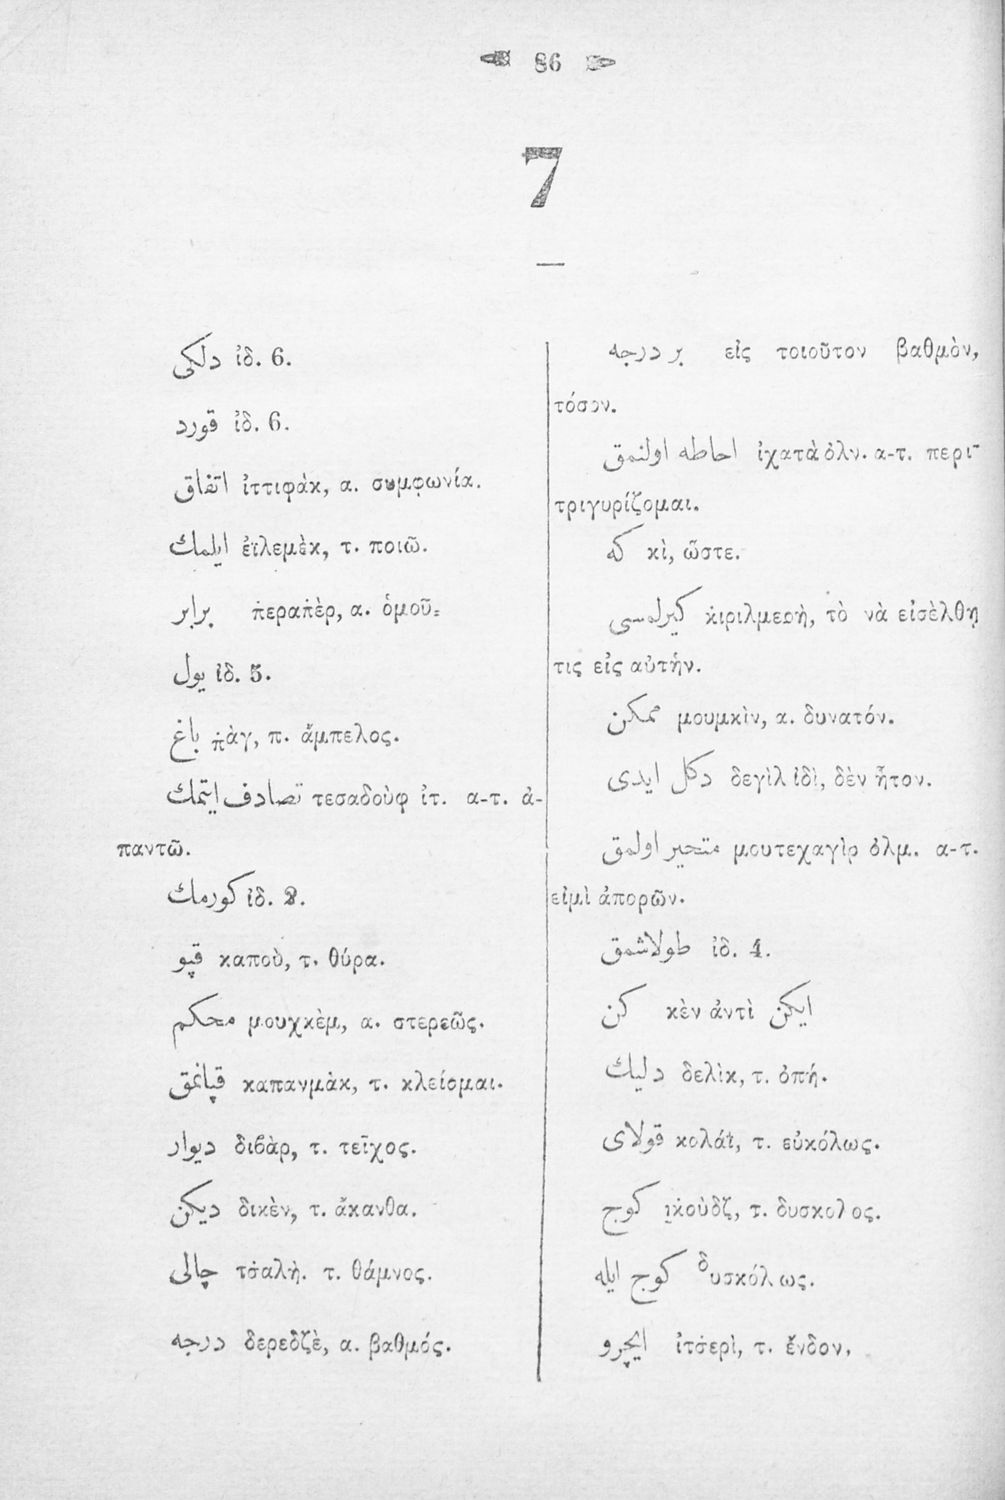 86
7
دلكى ἰδ. 6.
قورد ἰδ. 6.
اتفاق ἰττιφὰκ, α. συμφωνία.
ايلمك ἐϊλεμὲκ, τ. ποιῶ.
برابر π̇εραπ̇ὲρ, α. ὁμοῦ.
يول ἰδ. 5.
باغ π̇ὰγ, π. ἄμπελος.
تصادف ايتمك τεσαδοὺφ ἰτ. α-τ. ἀ-
παντῶ.
كورمك ἰδ. 2.
قپو καποὺ, τ. θύρα.
محكم μουχκὲμ, α. στερεῶς.
قپانمق καπανμὰκ, τ. κλείομαι.
ديوار διβὰρ, τ. τεῖχος.
ديكن δικὲν, τ. ἄκανθα.
چالى τσ̇αλὴ. τ. θάμνος.
درجه δερεδζὲ, α. βαθμός.
بر درجه εἰς τοιοῦτον βαθμὸν,
τόσον.
احاطه اولنمق ἰχατὰ ὀλν. α-τ. περι-
τριγυρίζομαι.
كه κὶ, ὥστε.
كيرلمسى κ̇ιριλμεσὴ, τὸ νὰ εἰσὲλθῃ
τις εἰς αὐτήν.
ممكن μουμκὶν, α. δυνατόν.
دكل ايدى δεγὶλ ἰδὶ, δὲν ἦτον.
متحير اولمق μουτεχαγὶρ ὀλμ. α-τ.
εἰμὶ ἀπορῶν.
طولاشمق ἰδ. 4.
كن κὲν ἀντὶ ايكن
دليك δελὶκ, τ. ὀπή.
قولاى κολάϊ, τ. εὐκόλως.
كوج κ̇ιοὺδζ, τ. δυσκολος.
كوج ايله δυσκόλως.
ايچرو ἰτσ̇ερὶ, τ. ἔνδον,